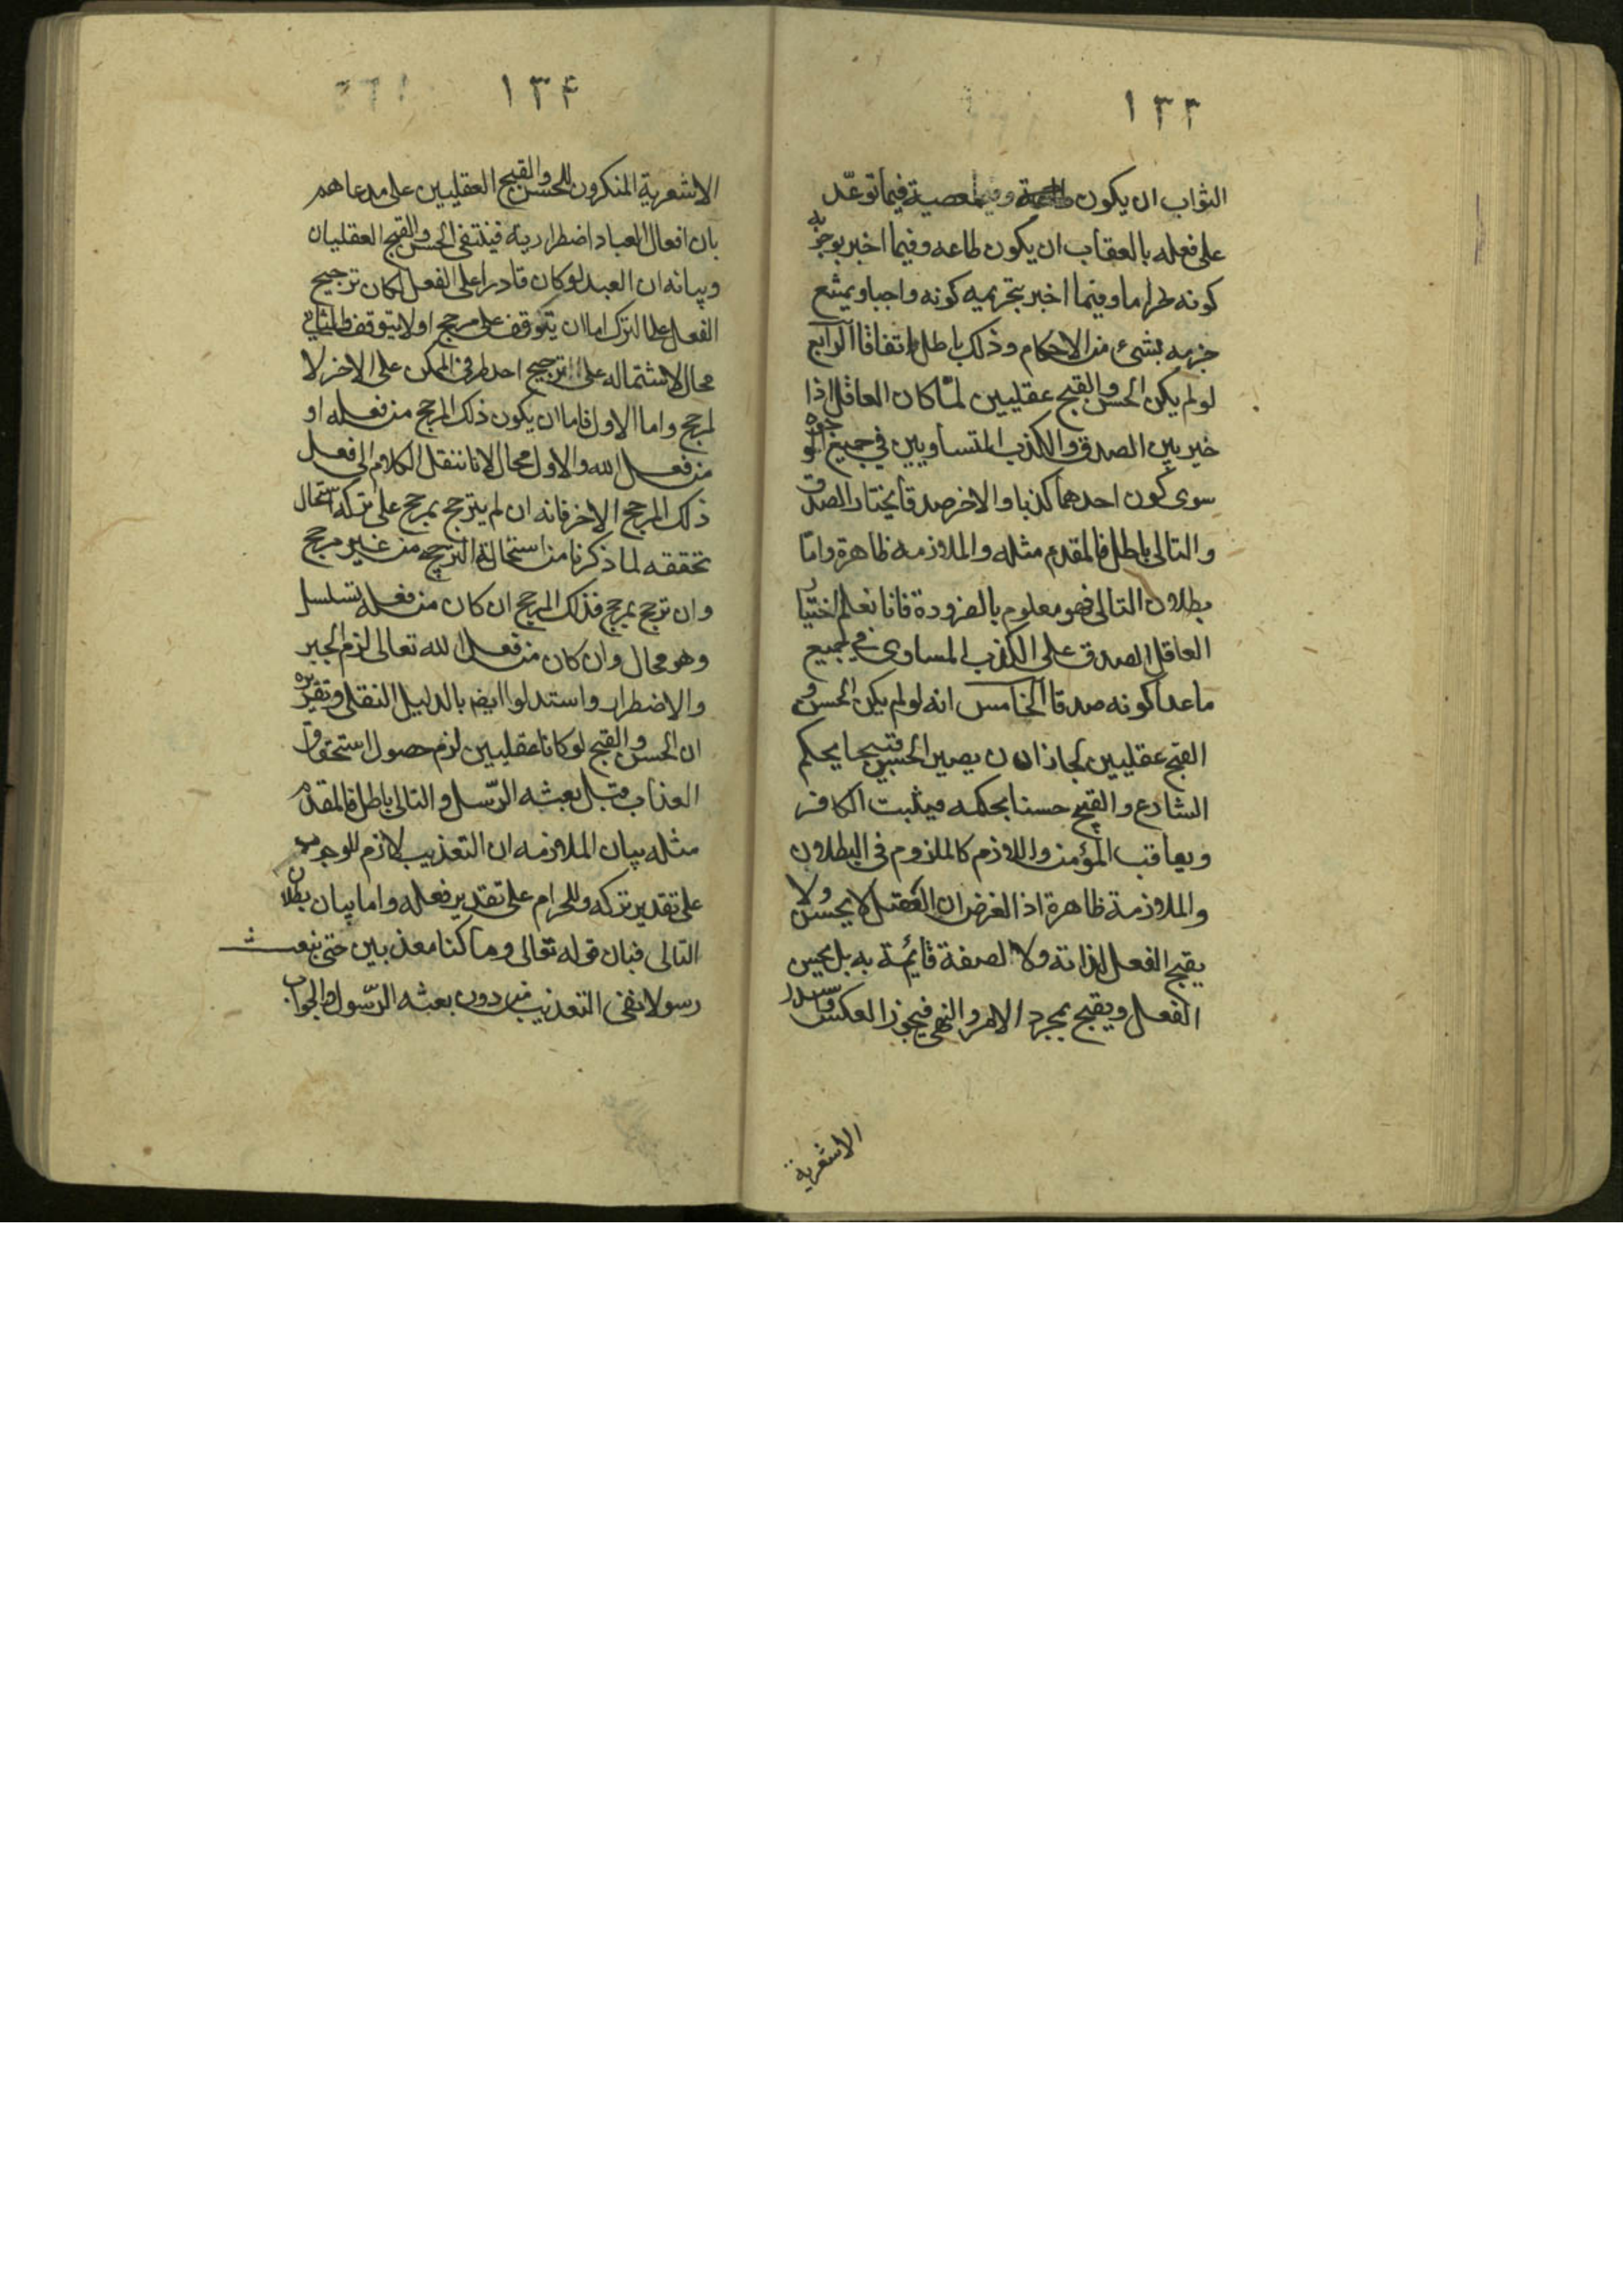 ١٣٣
الثواب ان يكون معصية فيما توعّد
على فعله بالعقاب ان يكون طاعه وفيما اخبر بوجوبه
كونه حراما وفيما اخبر بتحريمه كونه واجبا ويمتنع
جزمه بشئ من الاحكام وذلك باطل اتفاقا الرابع
لو لم يكن الحسن والقبح عقليين لما كان العاقل اذا
خير بين الصدق والكذب المتساويين في جميع الوجوه
سوى كون احدهما كذبا والاخر صدقا يختار الصدق
والتالى باطل فالمقدم مثله والملازمه ظاهرة وامّا
بطلان التالى فهو معلوم بالضرورة فانا نعلم اختيار
العاقل الصدق على الكذب المساوى فى جميع
ما عدا كونه صدقا الخامس انه لو لم يكن الحسن و
القبح عقليين لجاز ان يصير الحسن قبيحا يحكم
الشارع والقبيح حسنا بحكمه فيثبت الكافر
ويعاقب المؤمن واللازم كالملزوم فى البطلان
والملازمة ظاهرة اذ الغرض ان العقل لا يحسن ولا
يقبح الفعل لذاته ولا لصفة قائمة به بل يحسن
الفعل ويقبح بمجرد الامر والنهى فيجوز العكس
الاشعرية
١٣۴
الاشعرية المنكرون للحسن والقبح العقليين على مدعاهم
بان افعال العباد اضطرارية فينتفى الحسن والقبح العقليان
وبيانه ان العبد لو كان قادرا على الفعل لكان ترجيح
الفعل على الترك اما ان يتوقف على مرجح او لا يتوقف والثانى
محال لاشتماله على ترجيح احد طرفى الممكن على الاخر لا
لمرجح واما الاول فاما ان يكون ذلك المرجح من فعله او
من فعل الله والاول محال لانا ننقل الكلام الى فعل
ذلك المرجح الاخر فانه ان لم يترجح بمرجح على تركه استحال
تحققه لما ذكرنا من استحالة الترجيح من غير مرجح
وان ترجح بمرجح فذلك المرجح ان كان من فعله تسلسل
وهو محال وان كان من فعل الله تعالى لزم الجبر
والاضطرار واستدلوا ايضا بالدليل النقلى وتقريره
ان الحسن والقبح لو كانا عقليين لزم حصول استحقاق
العذاب قبل بعثه الرّسل والتالى باطل فالمقدم
مثله بيان الملازمه ان التعذيب لازم للوجوب
على تقدير تركه وللحرام على تقدير فعله واما بيان بطلان
التالى فبان قوله تعالى وما كنا معذبين حتى نبعث
رسولا نفى التعذيب من دون بعثه الرّسول والجواب